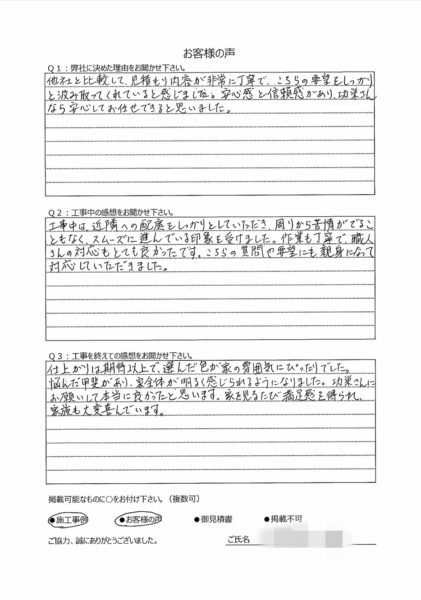 お客様の声
Q1：弊社に決めた理由をお聞かせ下さい。
他社と比較して、見積もり内容が非常に丁寧で、こちらの要望をしっかり
と汲み取ってくれていると感じました。安心感と信頼感があり、功栄さん
なら安心してお任せできると思いました。
Q2：工事中の感想をお聞かせ下さい。
工事中は、近隣への配慮をしっかりとしていただき、周りから苦情がでるこ
ともなく、スムーズに進んでいる印象を受けました。作業も丁寧で、職人
さんの対応もとても良かったです。こちらの質問や要望にも親身になって
対応していただきました。
Q3：工事を終えての感想をお聞かせ下さい。
仕上がりは期待以上で、選んだ色が家の雰囲気にぴったりでした。
悩んだ甲斐があり、家全体が明るく感じられるようになりました。功栄さんに
お願いして本当に良かったと思います。家を見るたび満足感を得られ、
家族も大変喜んでいます。
掲載可能なものに○をお付け下さい。（複数可）
●施工事例 ●お客様の声 ●御見積書 ●掲載不可
ご協力、誠にありがとうございました。 ご氏名